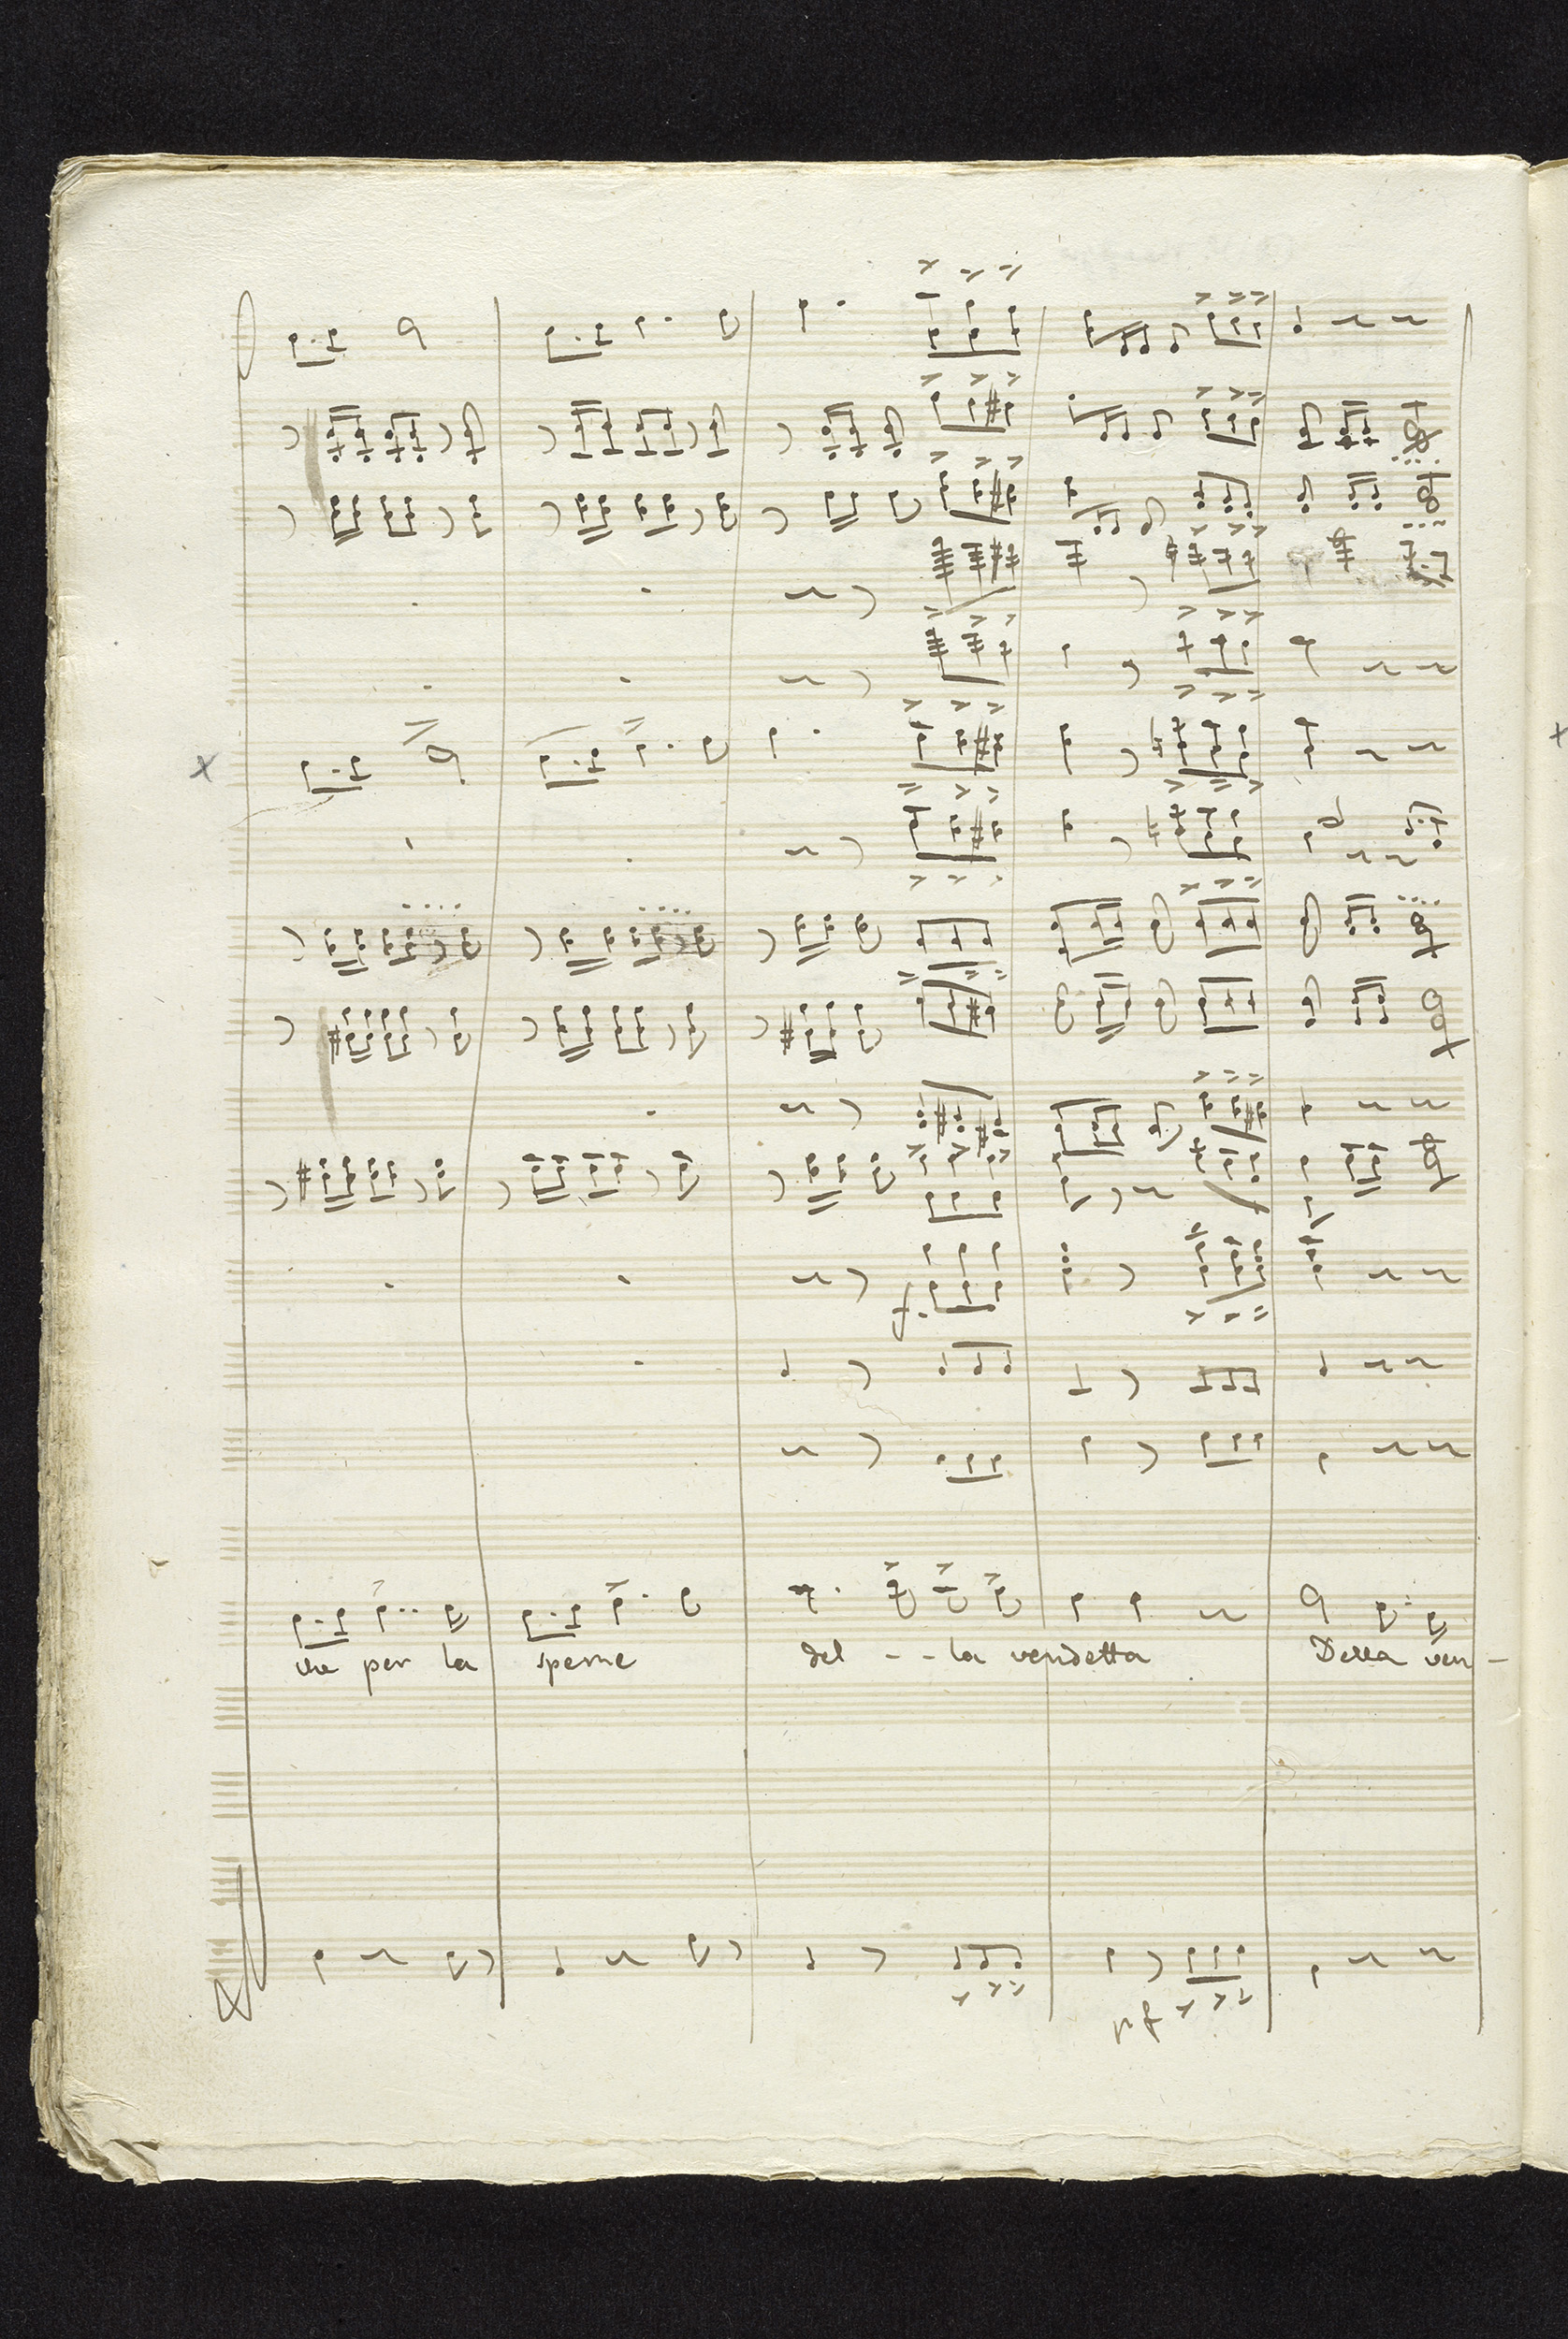 che per la speme del - - la vendetta Della ven -
rf